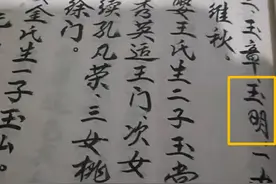 二玉章玉明一女
维秋
娶王氏生二子玉尚
秀英适王门次女
续孔凡荣三女桃
徐门。
金氏生一子玉公。